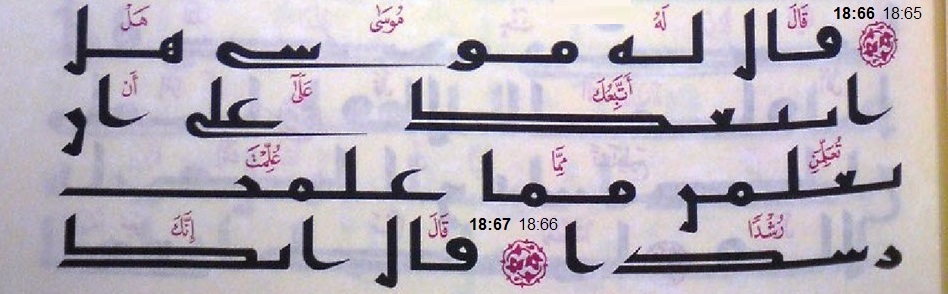 18:66 18:65 قَالَ لَهُ مُوسَىٰ هَلْ
قال له موسى هل
أَتَّبِعُكَ عَلَىٰٓ أَن
اتبعك على ان
تُعَلِّمَنِ مِمَّا عُلِّمْتَ
تعلمن مما علمت
رُشْدًا 18:67 18:66 قَالَ إِنَّكَ
رشدا قال انك